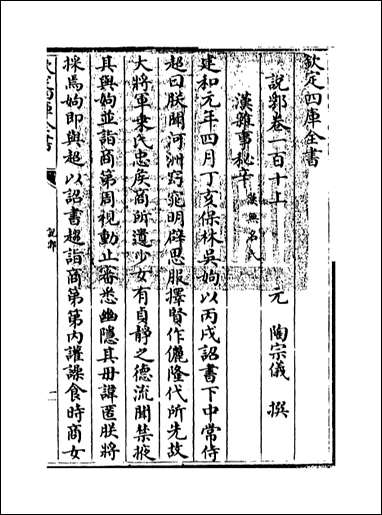 欽定四庫全書
說郛卷一百十上
元 陶宗儀 撰
漢雜事秘辛 漢無名氏
建和元年四月丁亥保林吳姁以丙戌詔書下中常侍
超曰朕聞河洲窈窕明辟思服擇賢作儷隆代所先故
大將軍乗氏忠侯商所遺少女有貞靜之德流聞禁掖
其與姁並詣商第周視動止審悉幽隱其毋諱匿朕將
採焉姁即與超以詔書趨詣商第第内讙譟食時商女
欽定四庫全書
說郛
一